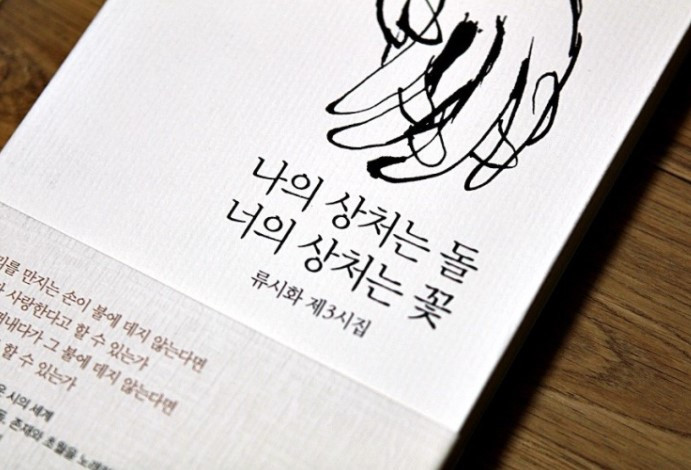 나의 상처는 돌
너의 상처는 꽃
류시화 제3시집
만지는 손이 불에 데지 않는다면
사랑한다고 할 수 있는가
그 불에 데지 않는다면
할 수 있는가
시의 세계
존재와 초월을